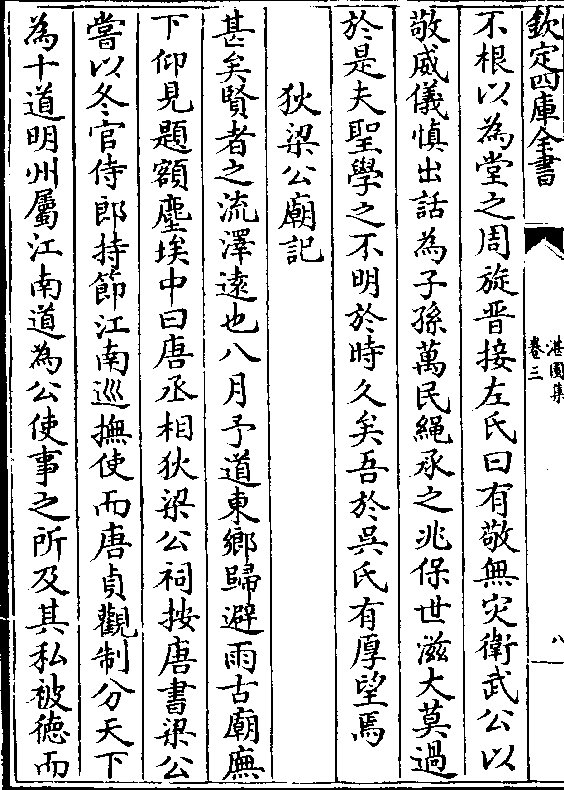 欽定四庫全書
湛園集
卷三
八
不根以為堂之周旋晋接左氏曰有敬無災衛武公以
敬威儀慎出話為子孫萬民繩承之兆保世滋大莫過
於是夫聖學之不明於時久矣吾於吳氏有厚望焉
狄梁公廟記
甚矣賢者之流澤遠也八月予道東鄉歸避雨古廟廡
下仰見題額塵埃中曰唐丞相狄梁公祠按唐書梁公
嘗以冬官侍郎持節江南巡撫使而唐貞觀制分天下
為十道明州屬江南道為公使事之所及其私被徳而